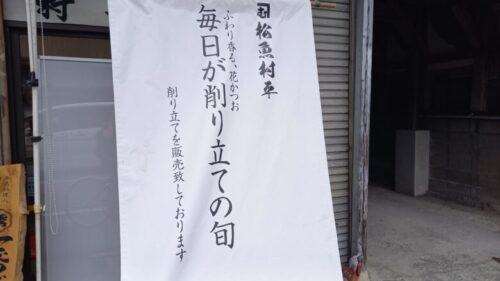 松魚村平
ふわり香る、花かつお
毎日が削り立ての旬
削り立てを販売致しております